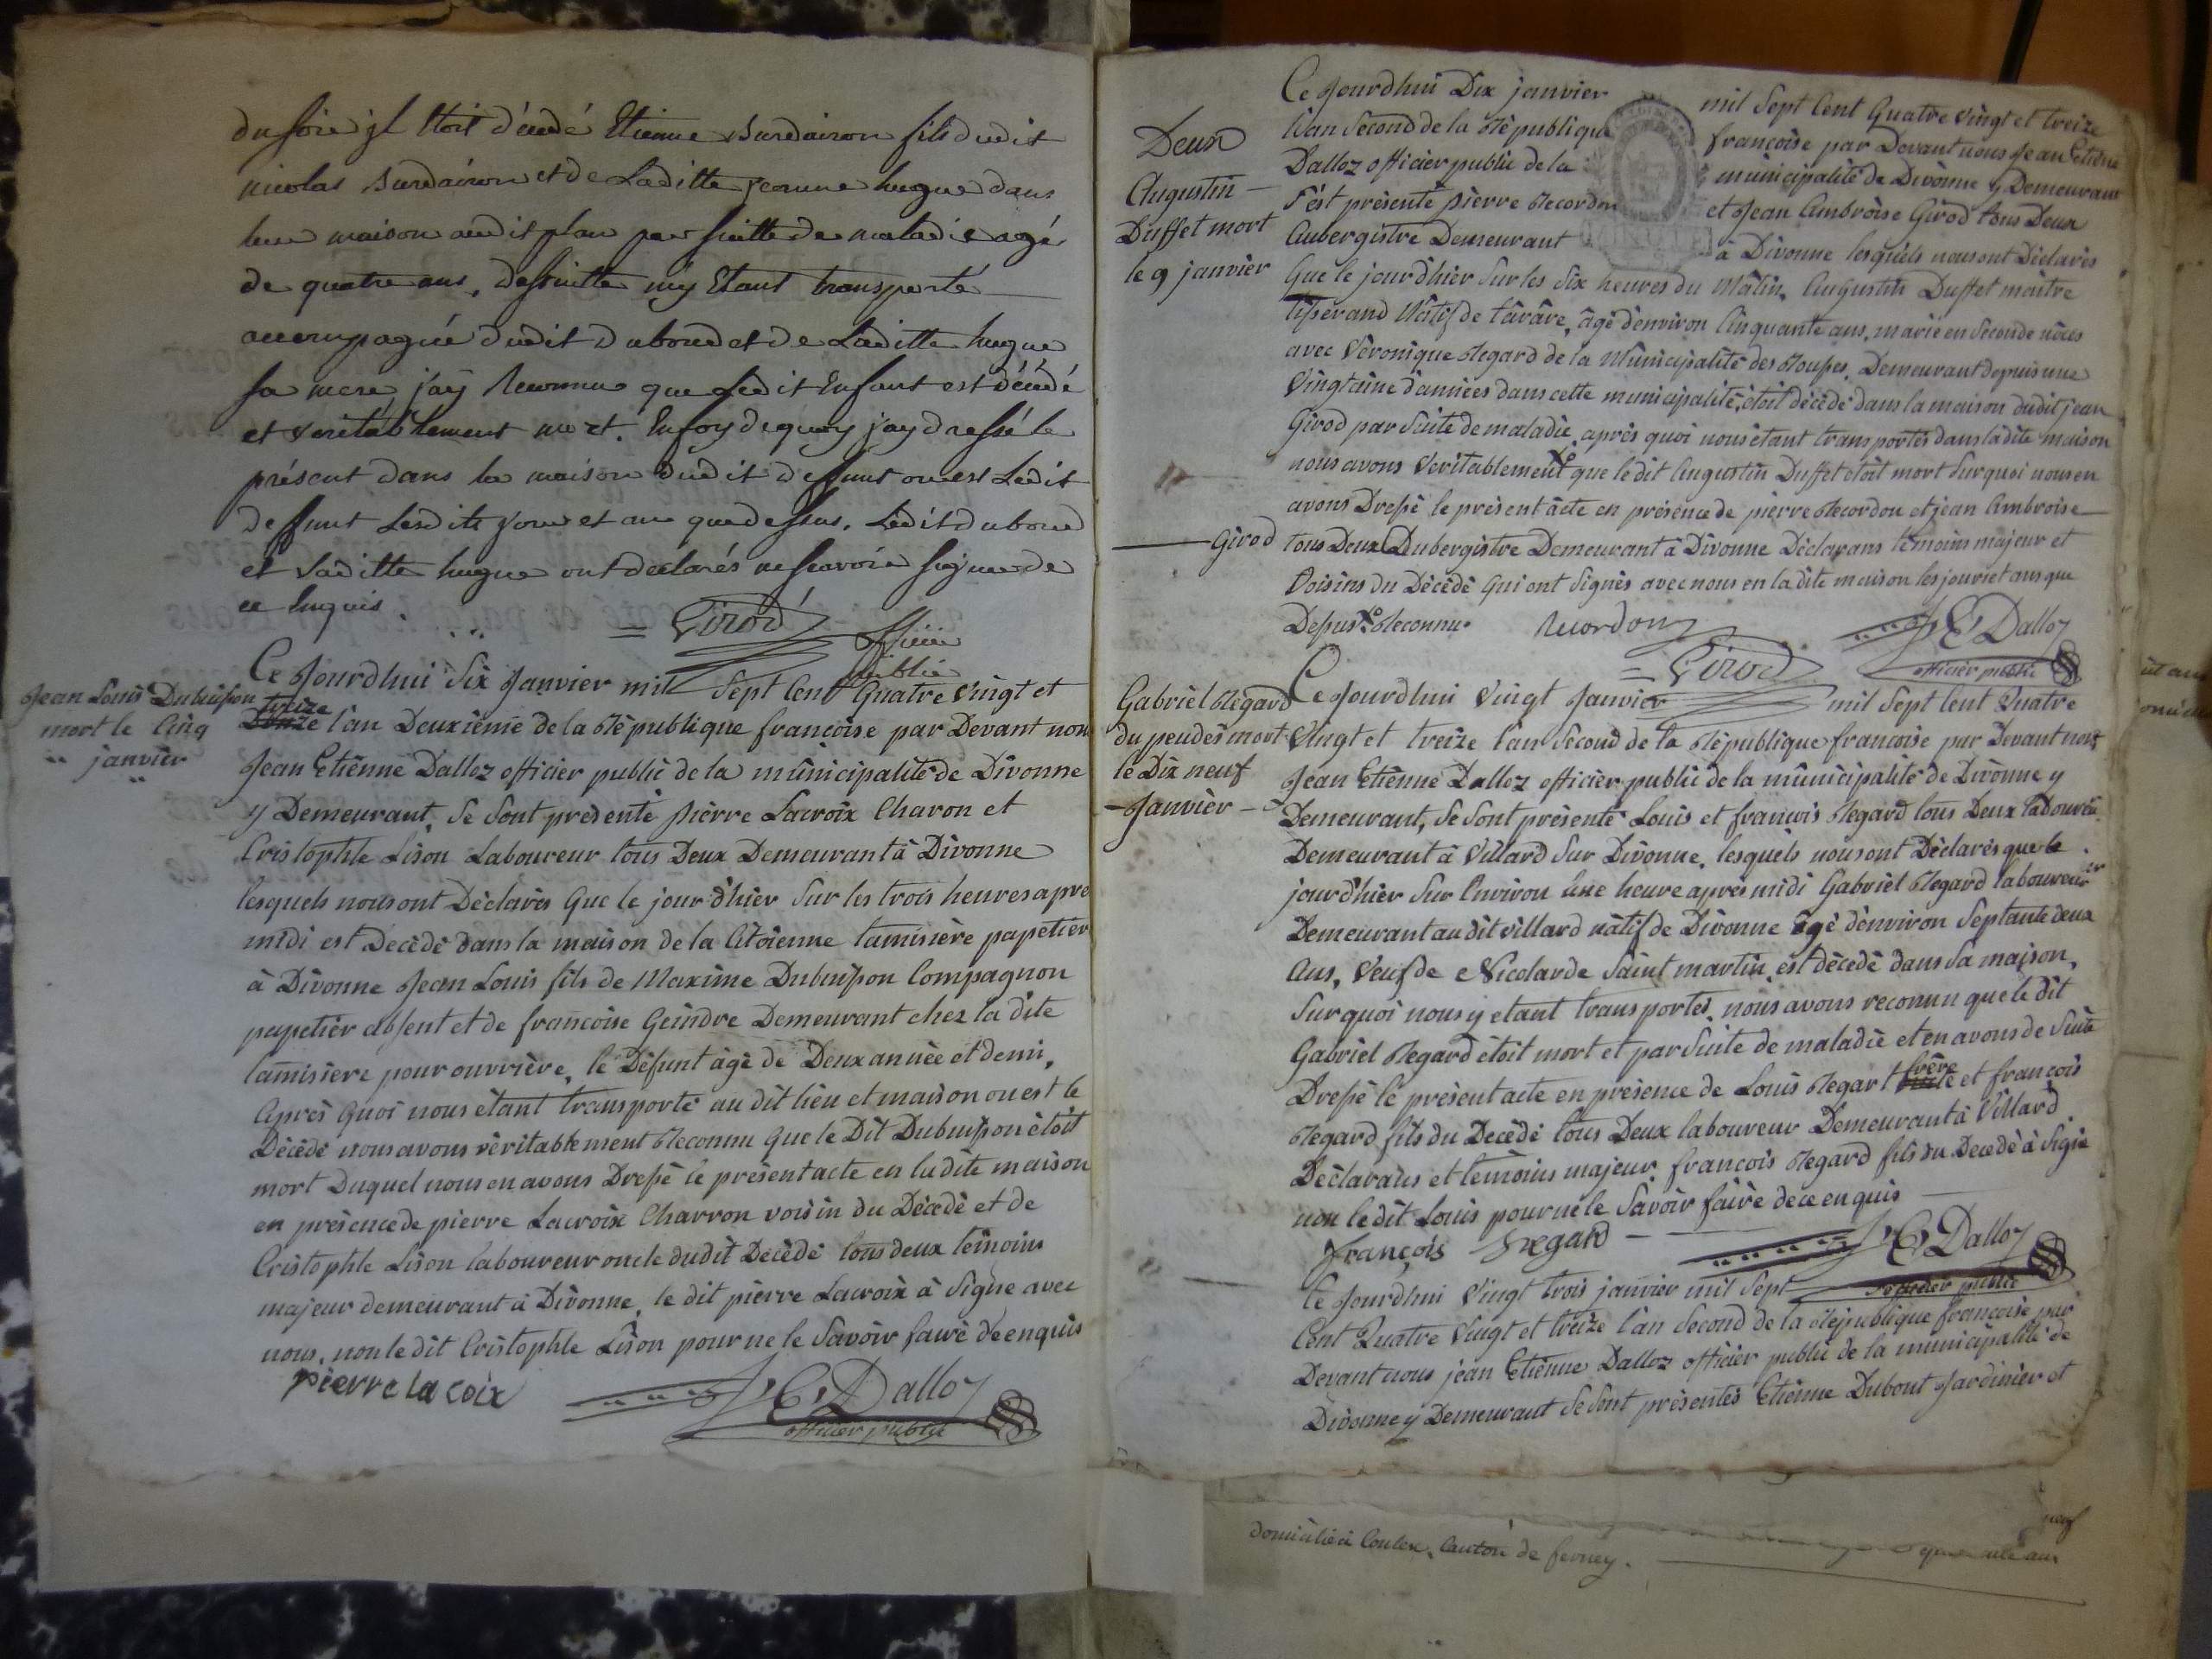 du soir jl étoit décédé Etienne Burdairon fils dudit
nicolas Burdairon et de Laditte jeanne hugue dans
leur maison audit plan par suitte de maladie agé
de quatre ans, dessuitte m'y Etant transporté
accompagné dudit dubourd et de Laditte hugue
sa mere, j'ay Reconnu que Ledit Enfant est décédé
et veritablement mort. En foy de quoy j'ay dressé le
présent dans la maison dudit deffunt ou est Ledit
deffunt Lesdits jour et an que dessus. Ledit dubourd
et Laditte hugue ont déclarés ne scavoir signer de
ce Enquis.
Girod officier
publié
Jean Louis Dubuisson
mort le Cinq
janvier
Ce Jourdhui Six Janvier mil Sept Cent Quatre vingt et
treize l'an Deuxième de la République françoise par Devant nous
Jean Etiènne Dalloz officier public de la mûnicipalité de Divonne
y Demeurant, Se Sont predenté pièrre Lacroix Charon et
Cristophle Lison Laboureur tous Deux Demeurant à Divonne
lesquels nous ont Déclarés Que le jour d'hier Sur les trois heures apre
midi est Décédé dans la maison de la Citöienne tamisière papetièr
à Divonne Jean Louis fils de Maxime Dubuisson Compagnon
papetièr absent et de françoise Geindre Demeurant chez la dite
tamisiere pour ouvrière, le Défunt âgé de Deux année et demi,
Après Quoi nous étant transporté au dit lieu et maison ou est le
Décédé nous avons véritablement Reconnu Que le Dit Dubuisson étoit
mort Duquel nous en avons Dressé le présent acte en la dite maison
en présence de pierre Lacroix Charron voisin du Décédé et de
Cristophle Lison laboureur oncle dudit Decédé tous deux témoins
majeur demeurant à Divonne, le dit pièrre Lacroix à Signé avec
nous, non le dit Cristophle Lison pour ne le Savoir fairè de enquis
pierre la coix
J E Dalloz
officier public
Deux
Augustin
Duffet mort
le 9 janvier
Ce Jourdhui Dix janvier mil Sept Cent Quatre vingt et treize
l'an Second de la République françoise par Devant nous Jean Etiène
Dalloz officier public de la municipalité de Divonne y Demeurant
S'ést présenté pièrre Recordon et Jean Ambroise Girod tous Deux
Aubergistre Demeurant à Divonne lesquels nous ont Déclarés
Que le jourd'hier Sur les Six heures du Matin, Augustin Duffet maitre
tisserand Nâtif de târâre, âgé d'environ Cinquante ans, marié en Séconde nôces
avec Véronique Regard de la Mûnicipalité des Rousses, Demeurant depuis une
Vingtaine d'années dans cette municipalité, étoit décédé dans la maison dudit jean
Girod par Suite de maladie, après quoi nous étant transportés dans la dite maison
nous avons Veritablement que le dit Augustin Duffet étoit mort Sur quoi nous en
avons Dressé le présent âcte en présence de pièrre Recordon et jean Ambroise
Girod tous Deux Aubergistre Demeurant à Divonne Déclarans témoins majeur et
Voisins du Décédé Qui ont Signés avec nous en la dite maison les jour et ans que
Dessus Reconnu. Recordon
Girod
J E Dalloz
officier public
Gabriel Régard
du peudés mort
le Dix neuf
Janvièr
Ce Jourdhui Vingt Janvier mil Sept Cent Quatre
Vingt et treize l'an Second de la République françoise par Devant nous
Jean Etiènne Dalloz officièr public de la mûnicipalité de Divonne y
Demeurant, Se Sont présenté Louis et françois Regard tous Deux laboureu
Demeurant à Villard Sur Divonne, lesquels nous ont Déclarés que le
jour d'hier Sur Environ üne heure après midi Gabriel Regard laboureur
Demeurant audit villard nâtif de Divonne âgé d'énviron Septante deux
Ans, Veuf de Nicolarde Saint martin est décedé dans Sa maison,
Sur quoi nous y etant transportés, nous avons reconnu que le dit
Gabriel Regard étoit mort et par Suite de maladie et en avons de Suite
Dressé le présent acte en présence de Louis Regart frère et françois
Regard fils du Decédé tous Deux laboureur Demeurant à Villard
Déclarans et témoins majeur, françois Regard fils du Decedé à Signé
non le dit Louis pour ne le Savoir fairè de ce enquis
françois Regard
J E Dalloz
officier public
Ce Jourdhui Vingt trois janvier mil Sept
Cent Quatre Vingt et treize l'an Second de la République françoise par
Devant nous jean Etiènne Dalloz officier public de la municipalité de
Divonne y Demeurant Se Sont présentés Etiènne Dubout Jardinièr et
domicilié à Coulex, Canton de ferney.